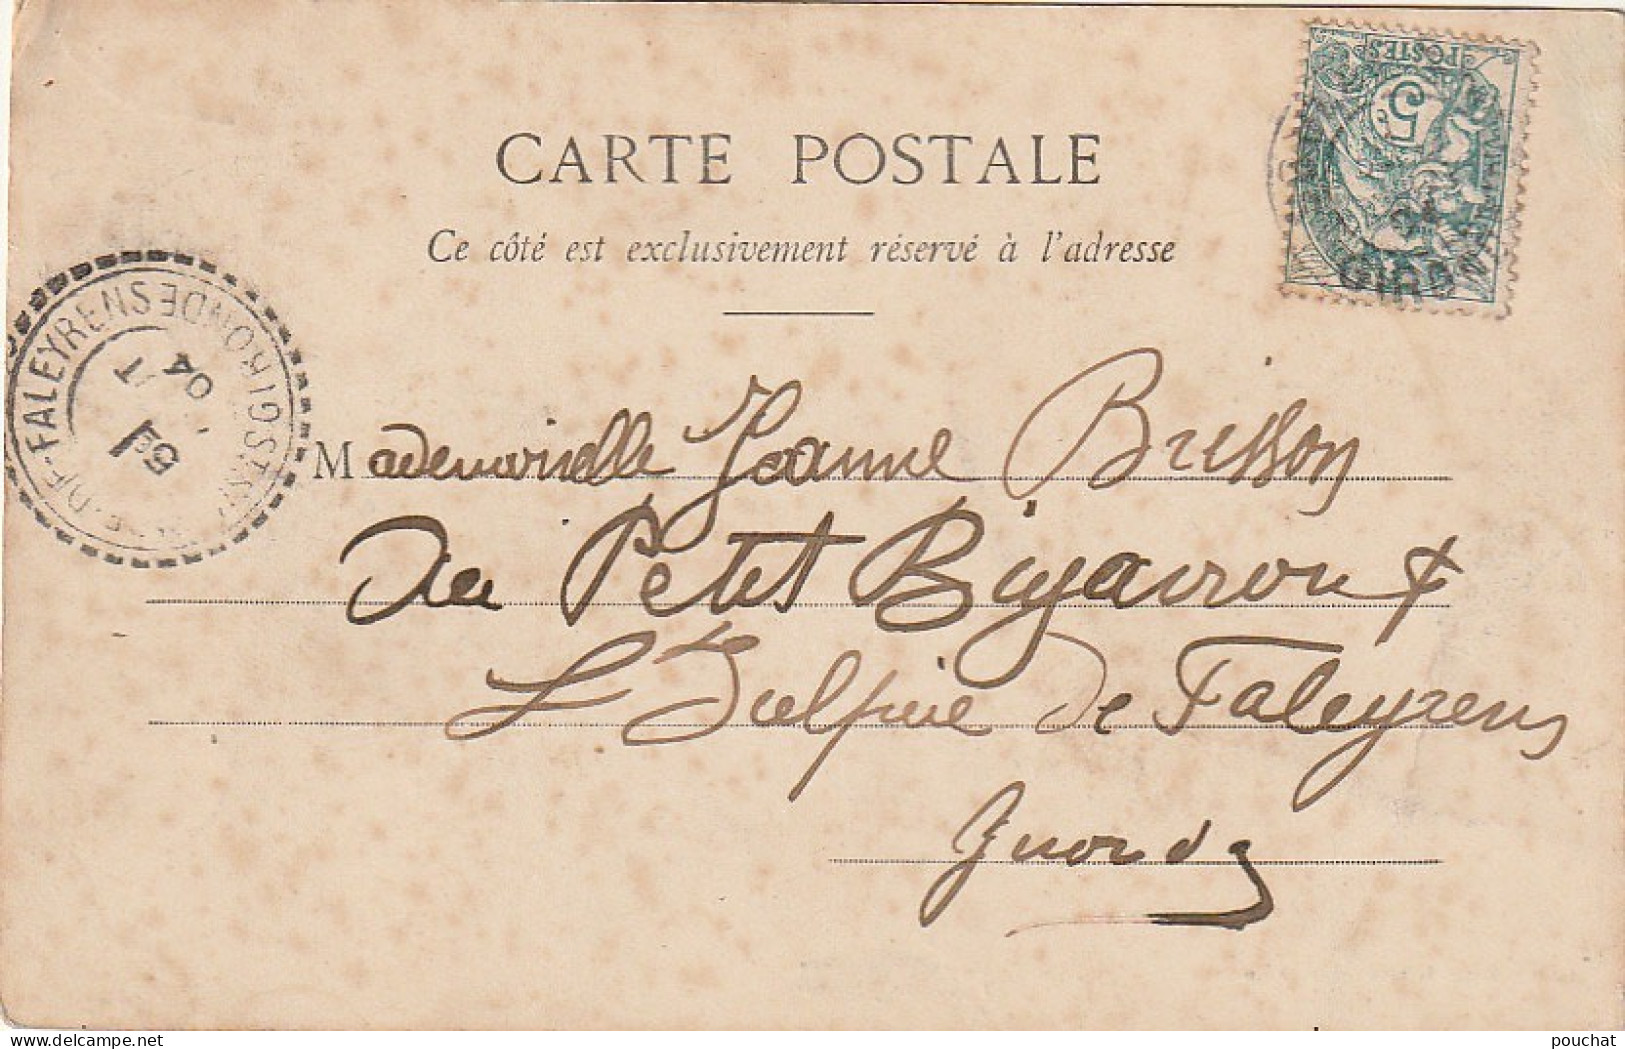 CARTE POSTALE
Ce côté est exclusivement réservé à l'adresse
POSTES
5c
GIRONDE
FALEYRENS GIRONDE
04
Mademoiselle Jeanne Brisson
Au Petit Bigaroux
St Sulpice de Faleyrens
Gironde
pouchat